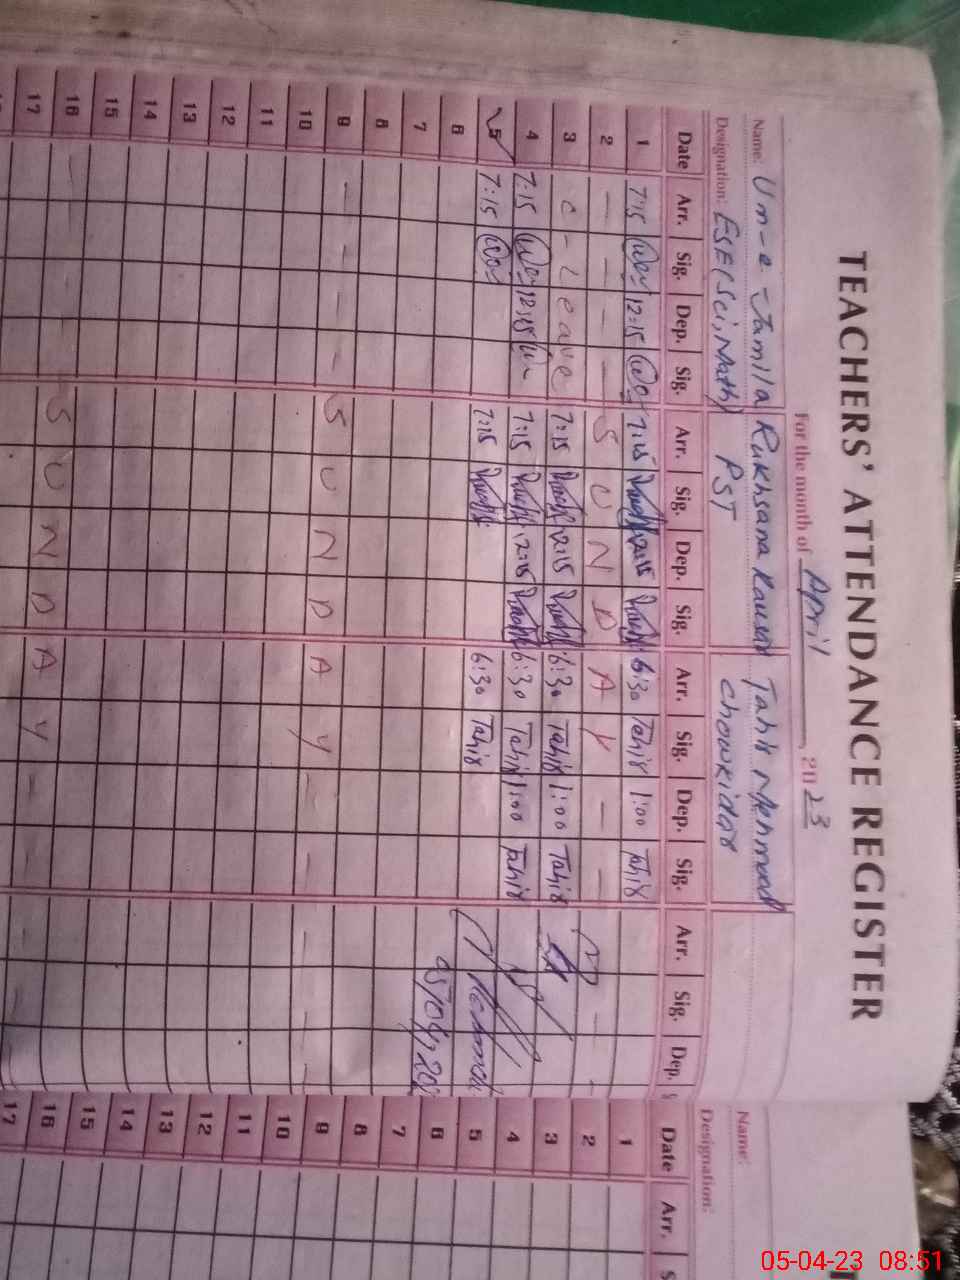 TEACHERS' ATTENDANCE REGISTER
For the month of April, 2023
Name: Um-e-Jamila Rukhsana Kausar Tahir Mehmood
Designation: ESE(Sci,Math) PST Chowkidar
Date Arr. Sig. Dep. Sig. Arr. Sig. Dep. Sig. Arr. Sig. Dep. Sig. Arr. Sig. Dep.
1 7:15 12:15 7:15 12:15 6:30 Tahir 1:00 Tahir
2 — — — — S U N D A Y — —
3 C - Leave 7:15 12:15 6:30 Tahir 1:00 Tahir
4 7:15 12:15 7:15 12:15 6:30 Tahir 1:00 Tahir
5 7:15 7:15 6:30 Tahir
6 05/04/202
7
8
9 — — — — S U N D A Y — —
10
11
12
13
14
15
16 — — — — S U N D A Y — —
17
Name:
Designation:
Date Arr.
1
2
3
4
5
6
7
8
9
10
11
12
13
14
15
16
17
05-04-23 08:51